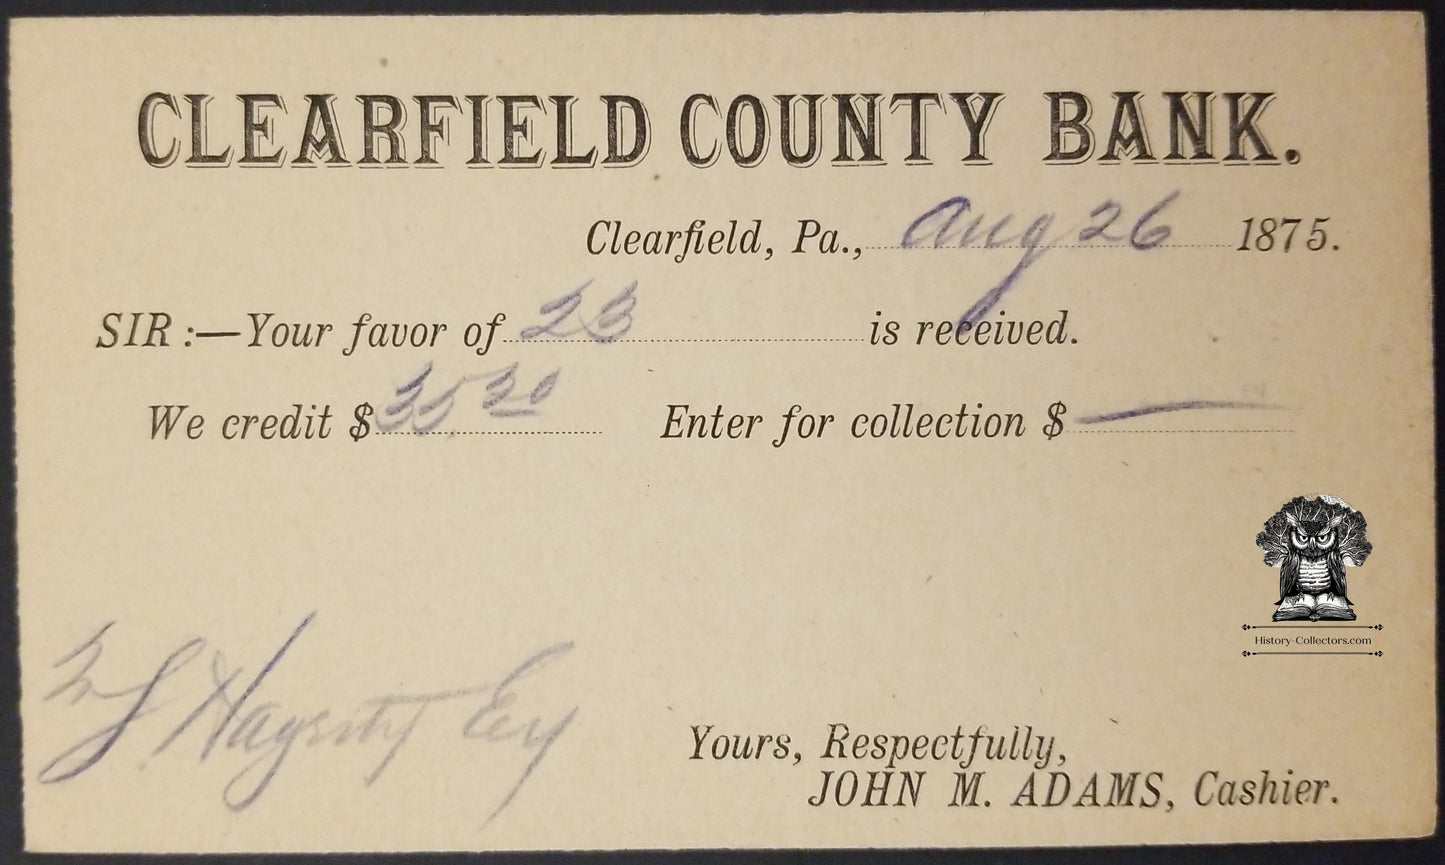 CLEARFIELD COUNTY BANK.
Clearfield, Pa., Aug 26 1875.
SIR:—Your favor of 23 is received.
We credit $35.30 Enter for collection $ —
History-Collectors.com
S Hagerty
Yours, Respectfully,
JOHN M. ADAMS, Cashier.